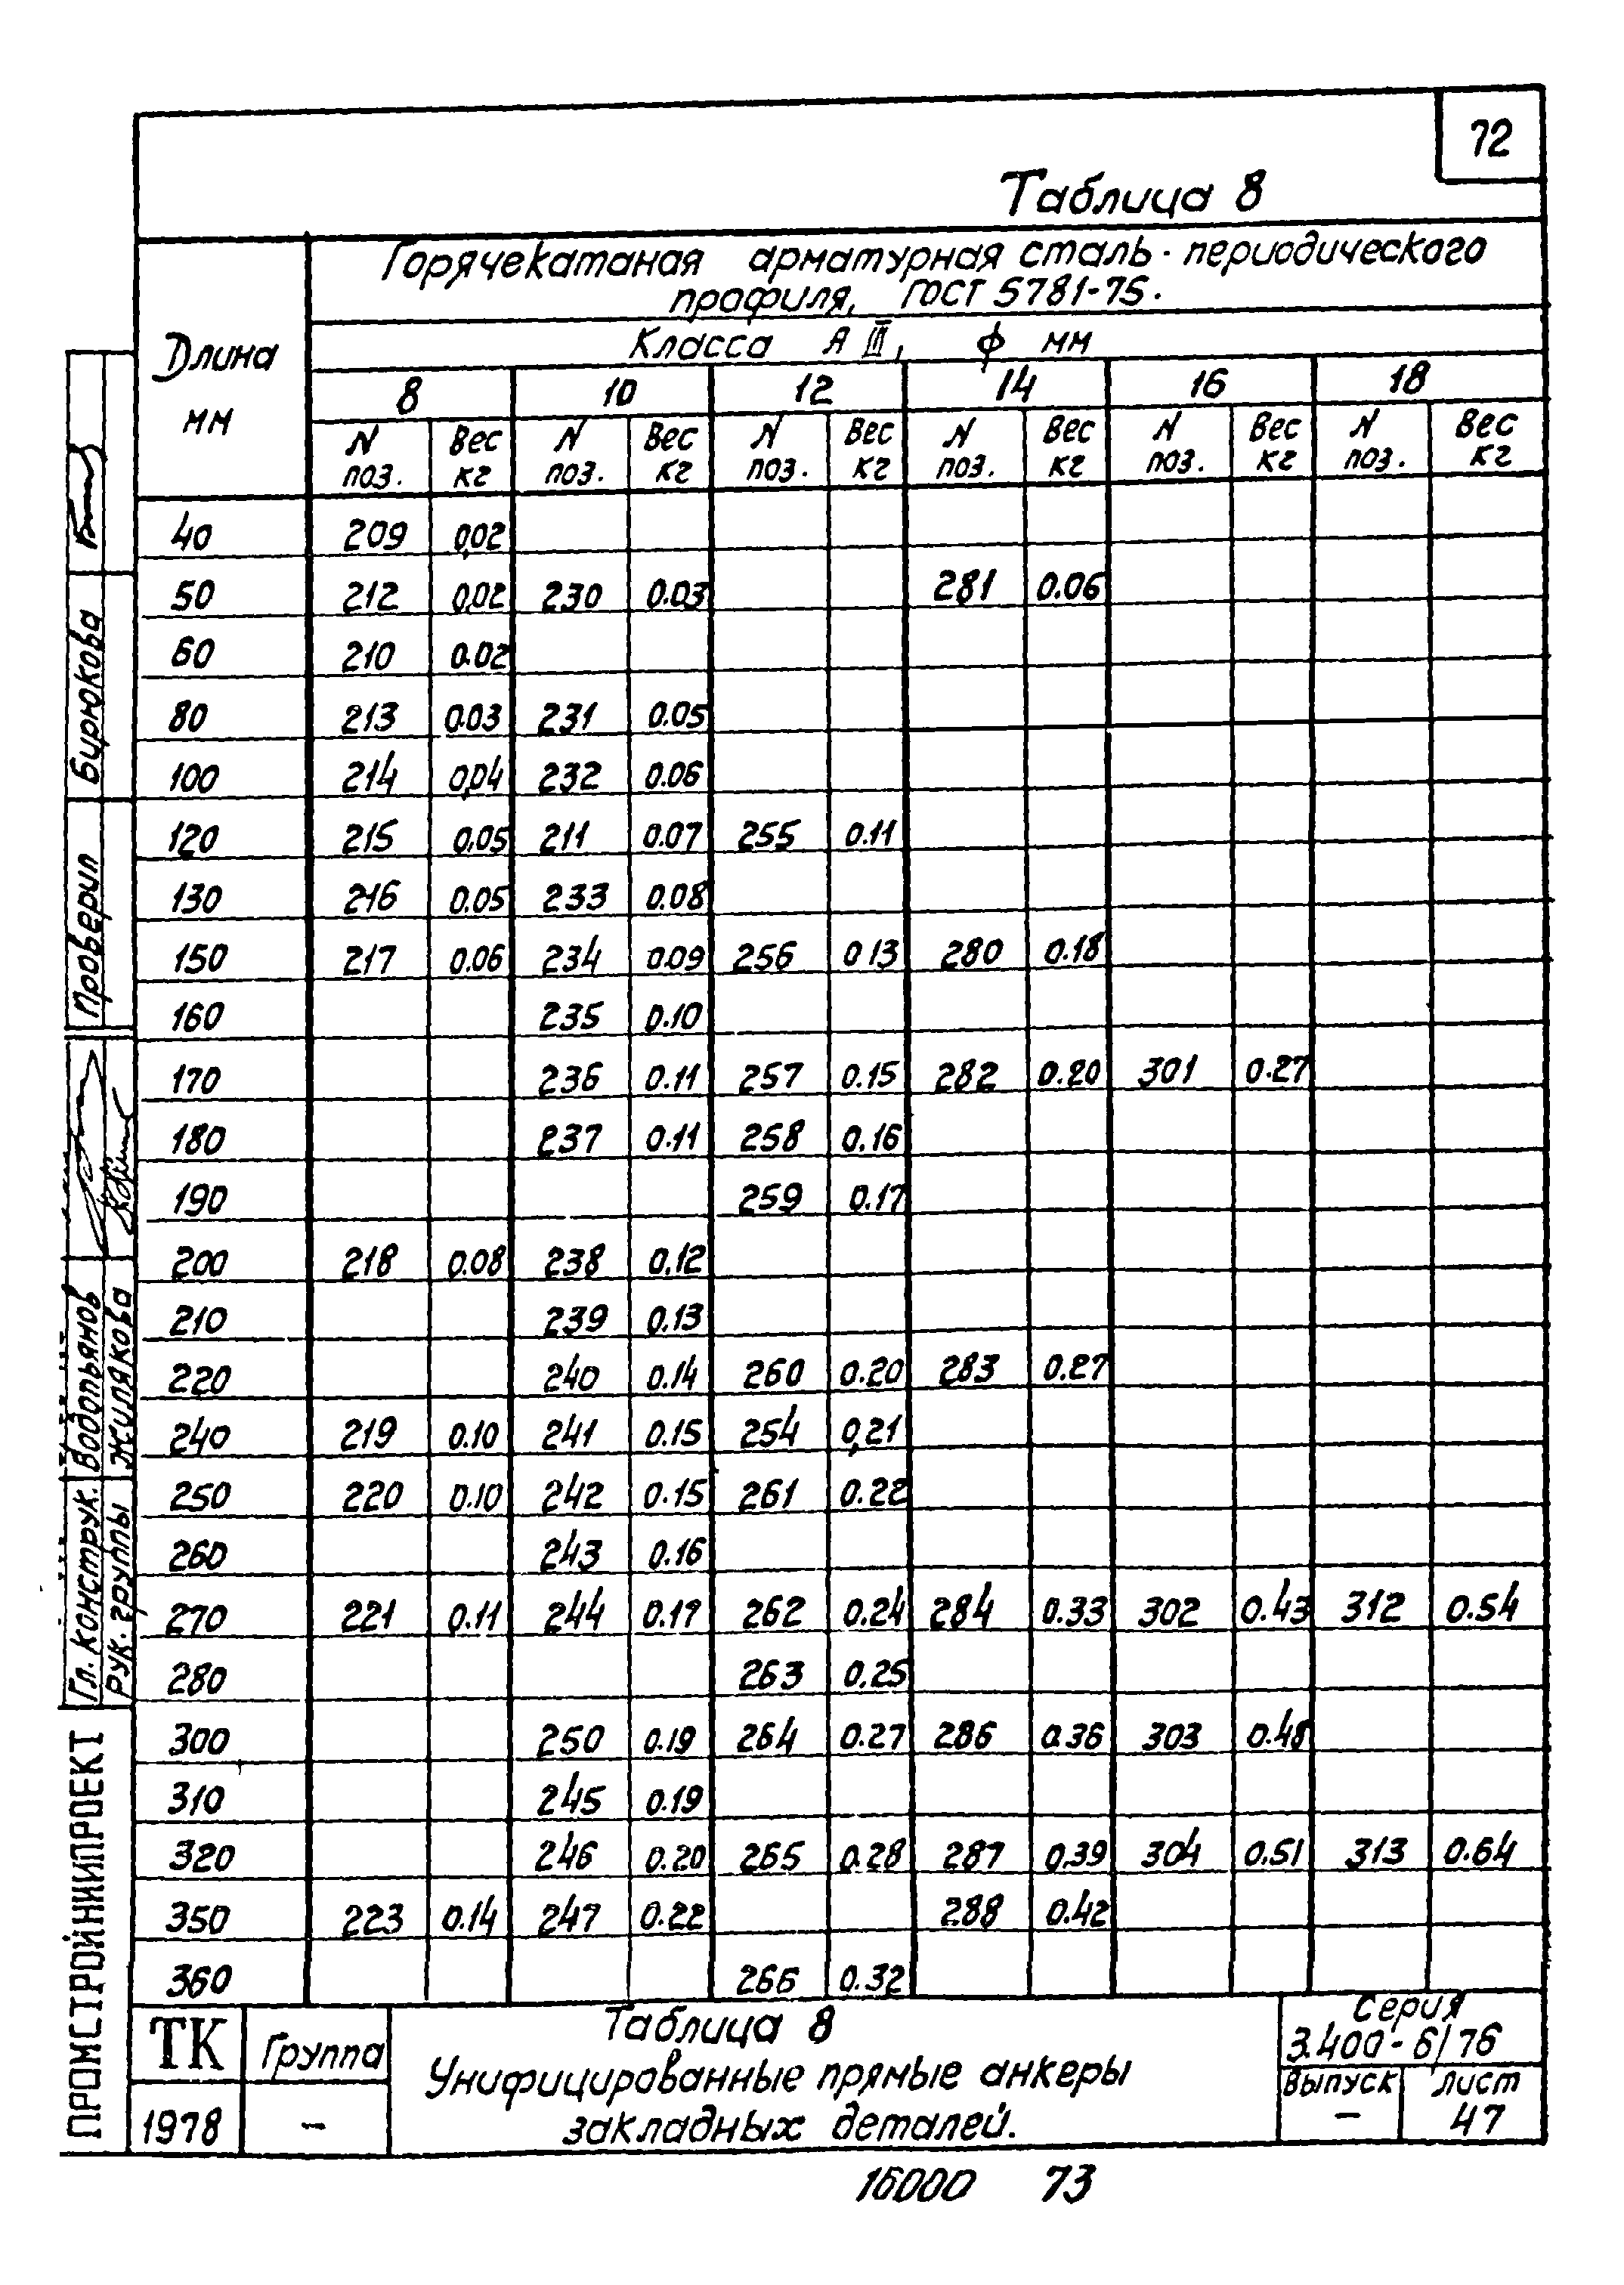 72
Таблица 8
Длина мм
Горячекатаная арматурная сталь периодического
профиля, ГОСТ 5781-75.
Класса А III, ф мм
8 10 12 14 16 18
N поз. Вес кг N поз. Вес кг N поз. Вес кг N поз. Вес кг N поз. Вес кг N поз. Вес кг
40 209 0,02
50 212 0,02 230 0.03 281 0.06
60 210 0.02
80 213 0.03 231 0.05
100 214 0,04 232 0.06
120 215 0.05 211 0.07 255 0.11
130 216 0.05 233 0.08
150 217 0.06 234 0.09 256 0 13 280 0.18
160 235 0.10
170 236 0.11 257 0.15 282 0.20 301 0.27
180 237 0.11 258 0.16
190 259 0.17
200 218 0.08 238 0.12
210 239 0.13
220 240 0.14 260 0.20 283 0.27
240 219 0.10 241 0.15 254 0,21
250 220 0.10 242 0.15 261 0.22
260 243 0.16
270 221 0.11 244 0.17 262 0.24 284 0.33 302 0.43 312 0.54
280 263 0.25
300 250 0.19 264 0.27 286 0.36 303 0.48
310 245 0.19
320 246 0.20 265 0.28 287 0.39 304 0.51 313 0.64
350 223 0.14 247 0.22 288 0.42
360 266 0.32
Проверил Бирюкова
Гл. конструк. Водопьянов
Рук. группы Жилякова
ПРОМСТРОЙНИИПРОЕКТ
ТК
1978
Группа
-
Таблица 8
Унифицированные прямые анкеры
закладных деталей.
Серия
3.400-6/76
Выпуск
-
Лист
47
16000 73